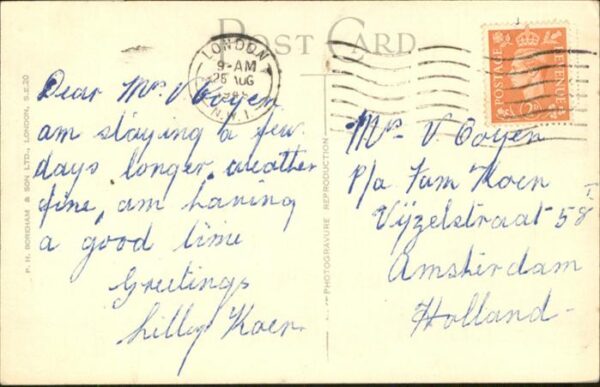 POST CARD
LONDON
9-AM
25 AUG
N.W.1
POSTAGE
REVENUE
Dear Mrs V. Coyen
am staying a few
days longer, weather
fine, am having
a good time
Greetings
Lilly Koen
Mrs V. Coyen
P/a Fam Koen
Vijzelstraat 58 I
Amsterdam
Holland
P. H. BOREHAM & SON LTD., LONDON, S.E.20
PHOTOGRAVURE REPRODUCTION